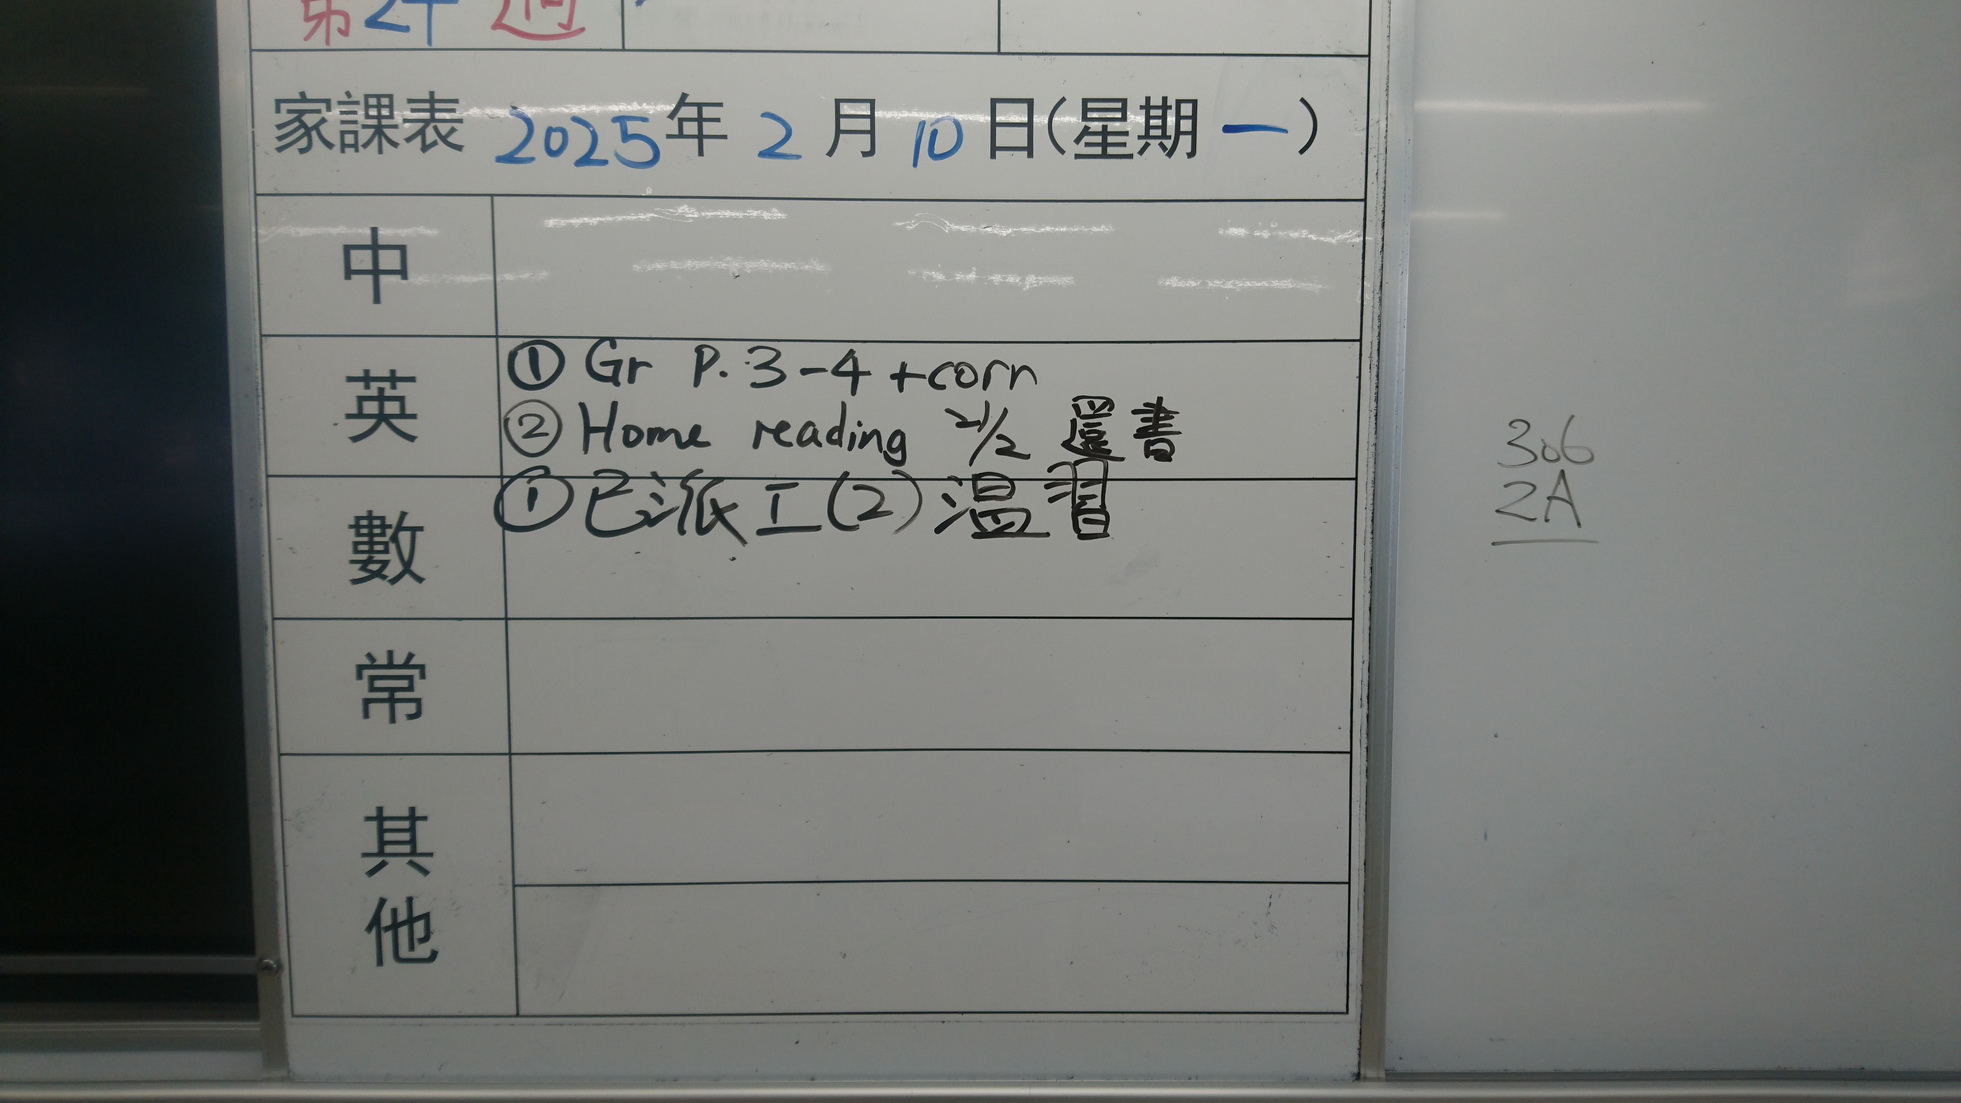 第2 週
家課表 2025年 2 月 10 日(星期一)
中
英
① Gr P. 3-4 +corn
② Home reading 21/2 還書
數
① 已派工(2)溫習
常
其他
306
2A